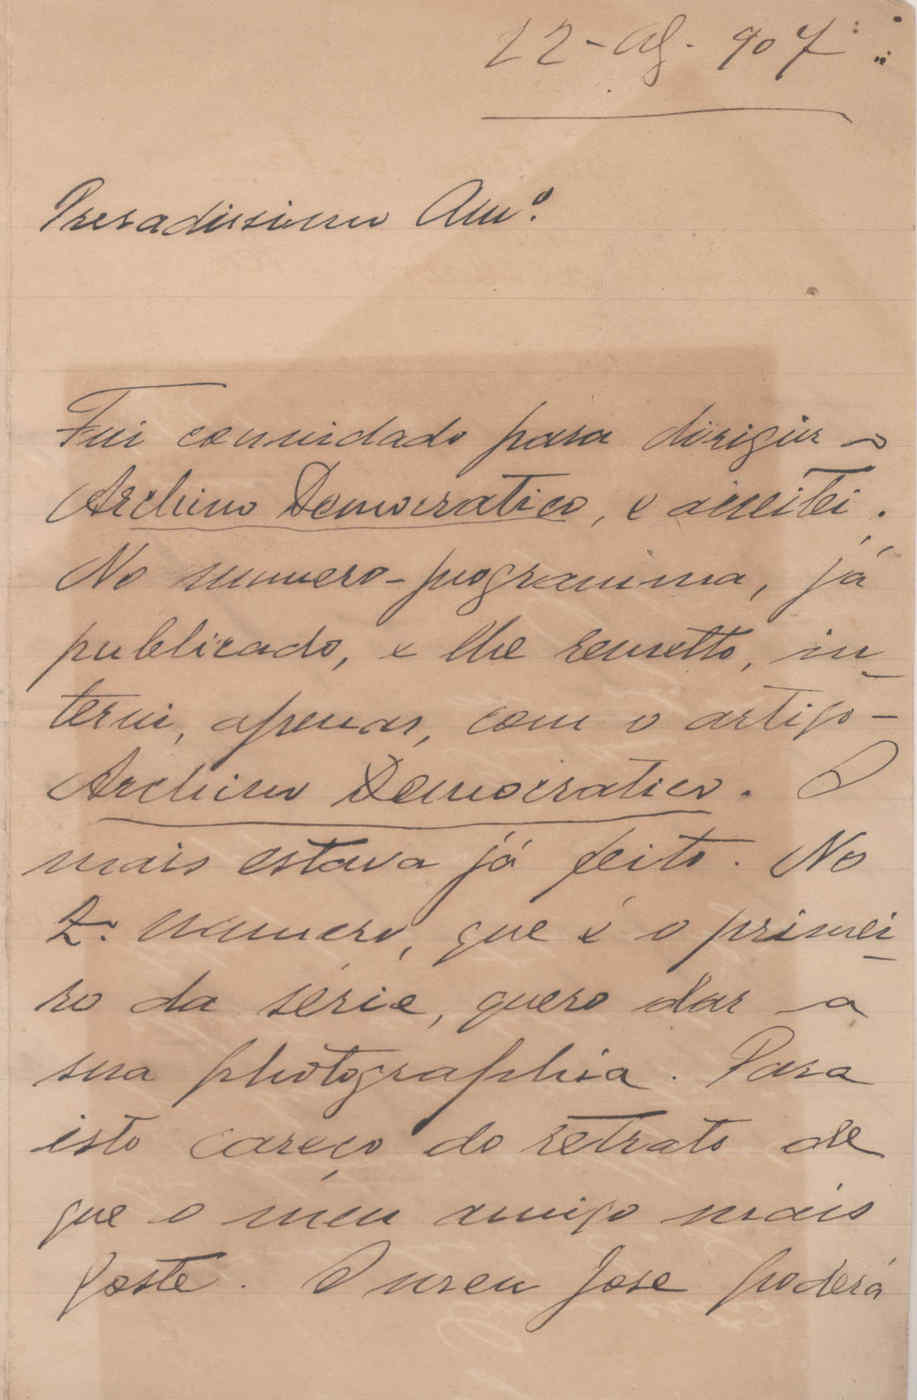 22-Ag. 907
Presadissimo Amº.
Fui convidado para dirigir o
Archivo Democratico, e acceitei.
No numero-programma, já
publicado, e lhe remetto, in-
tervi, apenas, com o artigo-
Archivo Democratico. O
mais estava já feito. No
2º. numero, que é o primei-
ro da série, quero dar a
sua photographia. Para
isto careço do retrato de
que o meu amigo mais
goste. O meu José poderá